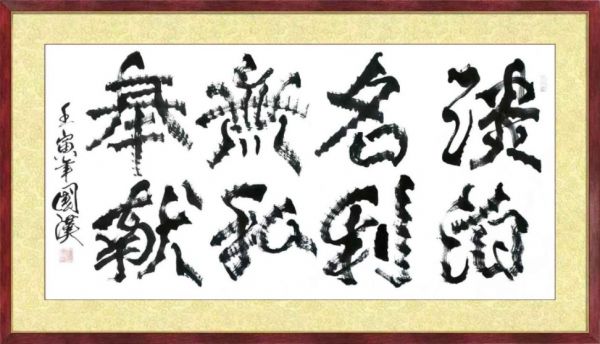 淡泊
名利
無私
奉献
壬寅年國漢